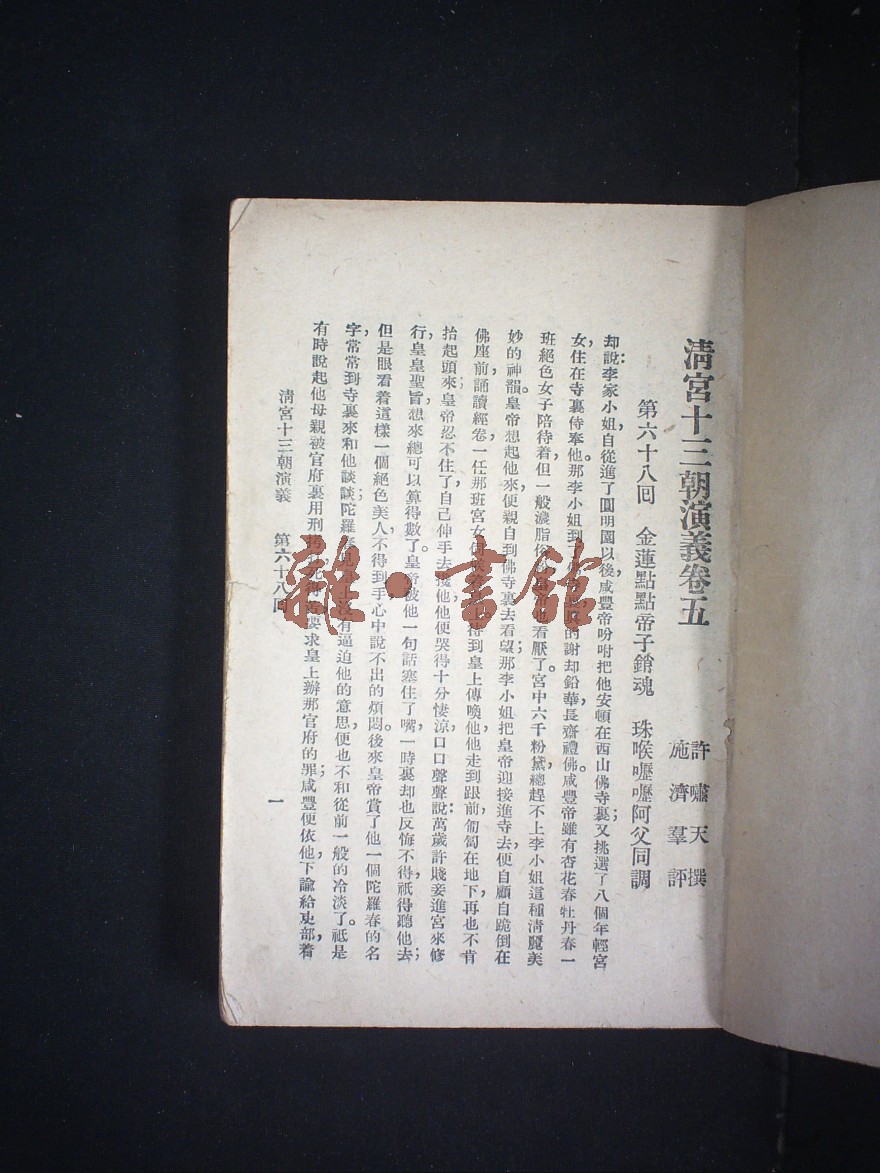 清宮十三朝演義卷五
許嘯天撰
施濟羣評
第六十八回　金蓮點點帝子銷魂　珠喉嚦嚦阿父同調
却說：李家小姐，自從進了圓明園以後，咸豐帝吩咐把他安頓在西山佛寺裏；又挑選了八個年輕宮
女，住在寺裏侍奉他。那李小姐到了的謝却鉛華，長齋禮佛。咸豐帝雖有杏花春牡丹春一
班絕色女子陪待着，但一般濃脂俗也看厭了。宮中六千粉黛，總趕不上李小姐這種清麗美
妙的神韻。皇帝想起他來，便親自到佛寺裏去看望；那李小姐把皇帝迎接進寺去，便自顧自跪倒在
佛座前，誦讀經卷，一任那班宮女待到皇上傳喚他，他走到跟前，匍匐在地下，再也不肯
抬起頭來；皇帝忍不住了，自己伸手去他，他便哭得十分悽涼，口口聲聲說：萬歲許賤妾進宮來修
行，皇皇聖旨，想來總可以算得數了。皇帝被他一句話塞住了嘴，一時裏却也反悔不得，祇得聽他去；
但是眼看着這樣一個絕色美人，不得到手，心中說不出的煩悶。後來皇帝賞了他一個陀羅春的名
字，常常到寺裏來和他談談；陀羅春見上沒有逼迫他的意思，便也不和從前一般的冷淡了。祇是
有時說起他母親被官府裏用刑要求皇上辦那官府的罪；咸豐便依他，下諭給吏部，着
清宮十三朝演義　第六十八回　一
雜·書館